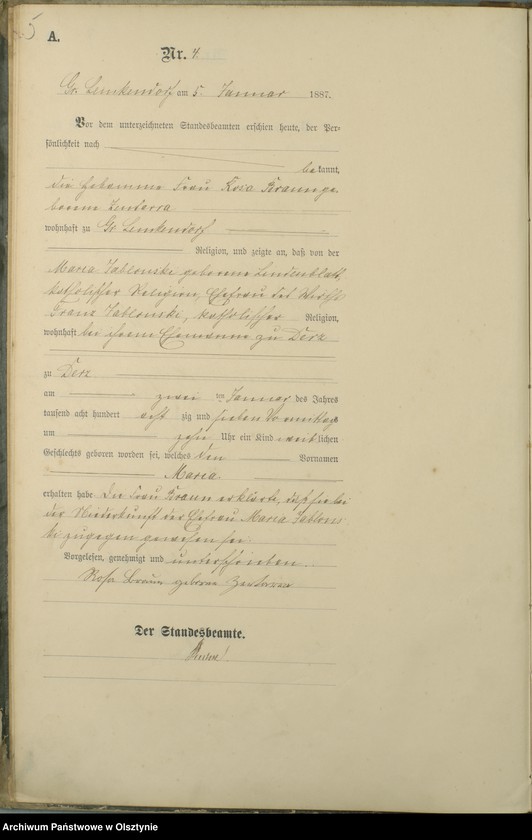 5
A.
Nr. 4.
Gr. Lemkendorf am 5. Januar 1887.
Vor dem unterzeichneten Standesbeamten erschien heute, der Per-
sönlichkeit nach
bekannt,
die Hebamme Frau Rosa Braun ge-
borene
wohnhaft zu Gr. Lemkendorf
Religion, und zeigte an, daß von der
Maria Jablonski geborene Lindenblatt,
katholischer Religion, Ehefrau des
Franz Jablonski, katholischer Religion,
wohnhaft bei ihrem Ehemanne zu Derz
zu Derz
am zwei ten Januar des Jahres
tausend acht hundert acht zig und sieben Vormittags
um zehn Uhr ein Kind weiblichen
Geschlechts geboren worden sei, welches den Vornamen
Maria
erhalten habe. Die Frau Braun erklärte, daß sie bei
der Niederkunft der Ehefrau Maria Jablons
ki zugegen gewesen sei.
Vorgelesen, genehmigt und unterschrieben
Rosa Braun geborne
Der Standesbeamte.
Archiwum Państwowe w Olsztynie